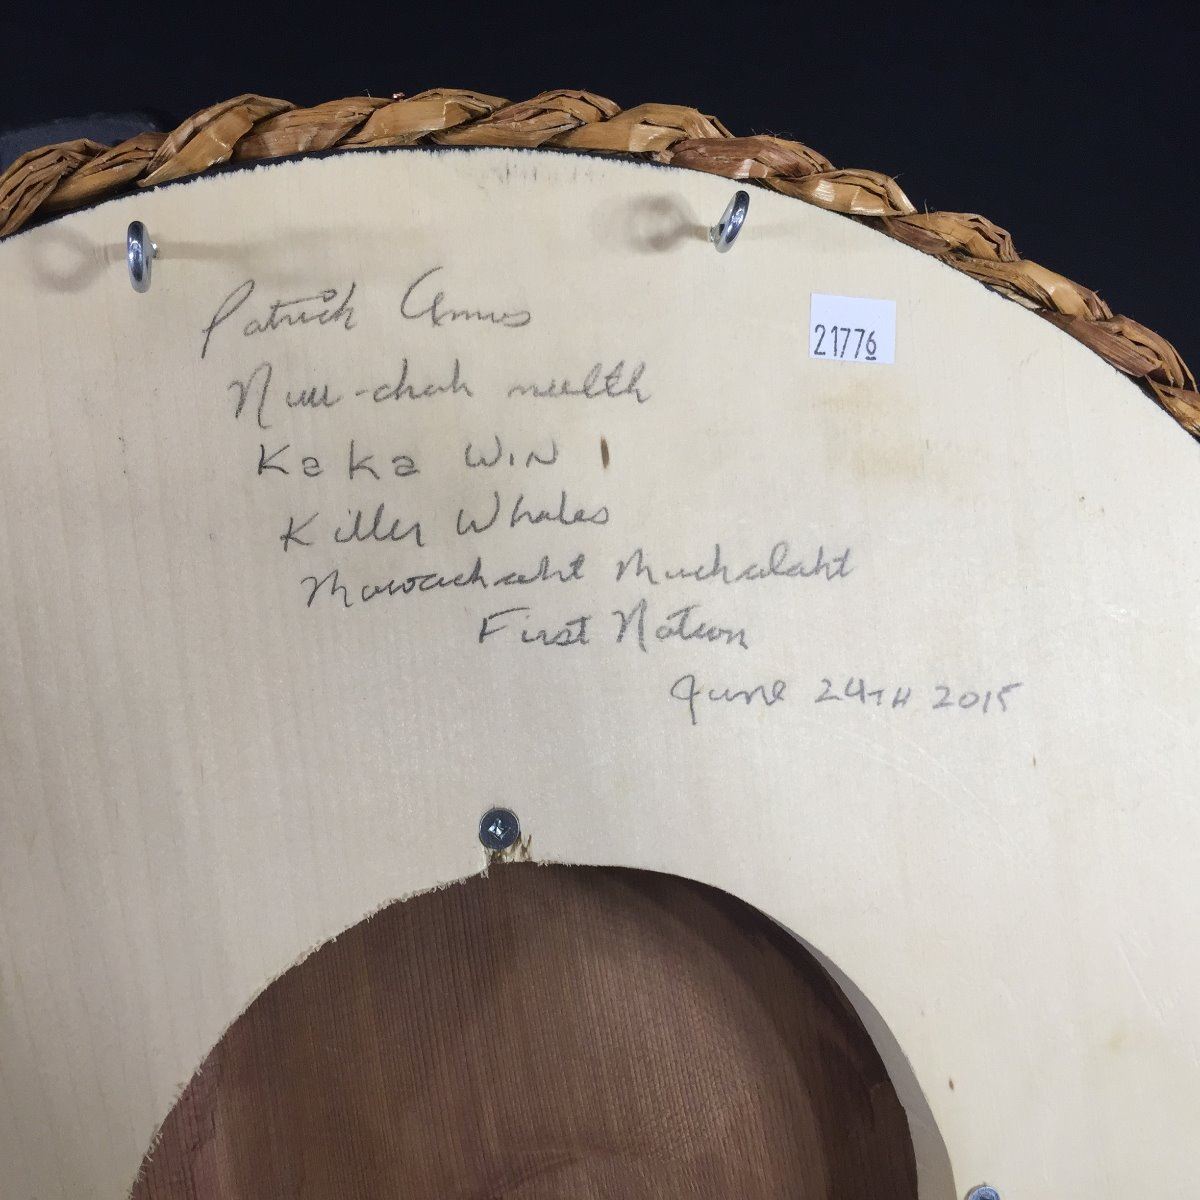 Patrick Amos
21776
Nuu-chah nulth
Kaka WIN
Killer Whales
Mowachaht Muchalaht
First Nation
June 24TH 2015